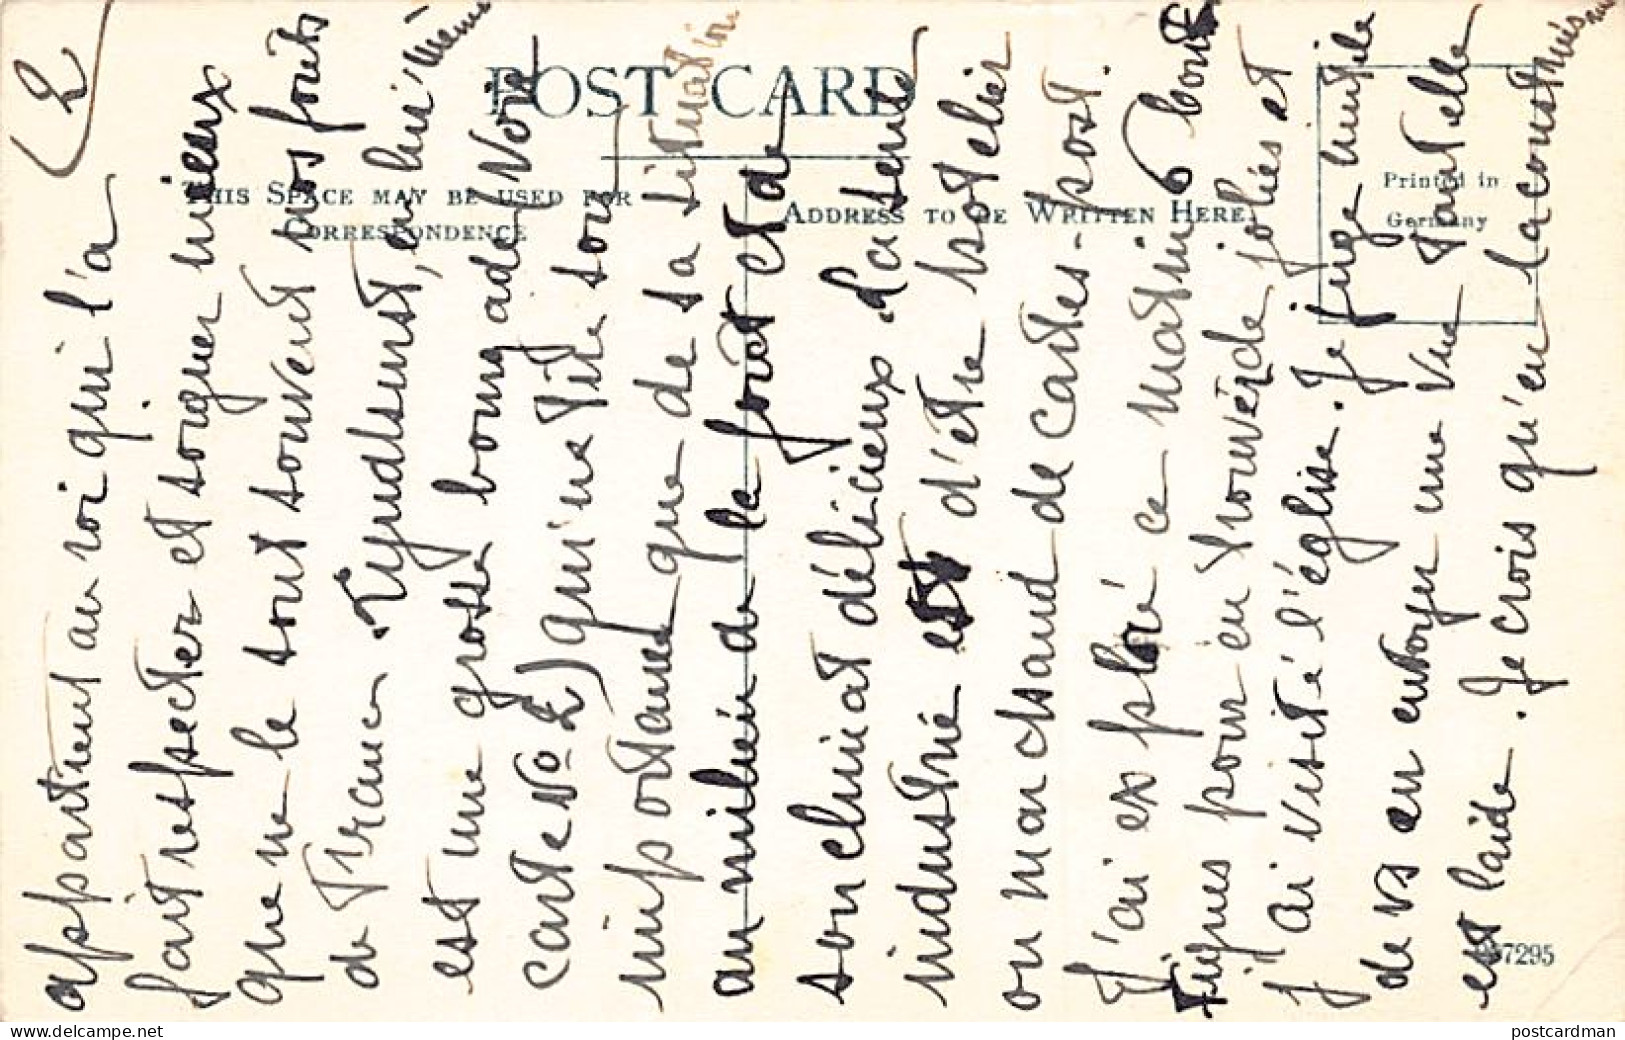 2
appartient au roi qui l'a
fait respecter et soigner mieux
que ne le sont souvent nos forêts
de France. Lyndhurst, en lui-même
est une grosse bourgade (Voir
carte No 2) qui ne tire son
importance que de sa situation
au milieu de la forêt et de
son climat délicieux. La seule
industrie est d'être hôtelier
ou marchand de cartes-post.
J'ai exploré ce matin 6 bout
iques pour en trouver de jolies et
j'ai visité l'église. Je juge inutile
de vs en envoyer une vue tant elle
est laide. Je crois qu'en la construisant
POST CARD
THIS SPACE MAY BE USED FOR
CORRESPONDENCE
ADDRESS TO BE WRITTEN HERE.
Printed in
Germany
7295
www.delcampe.net
postcardman